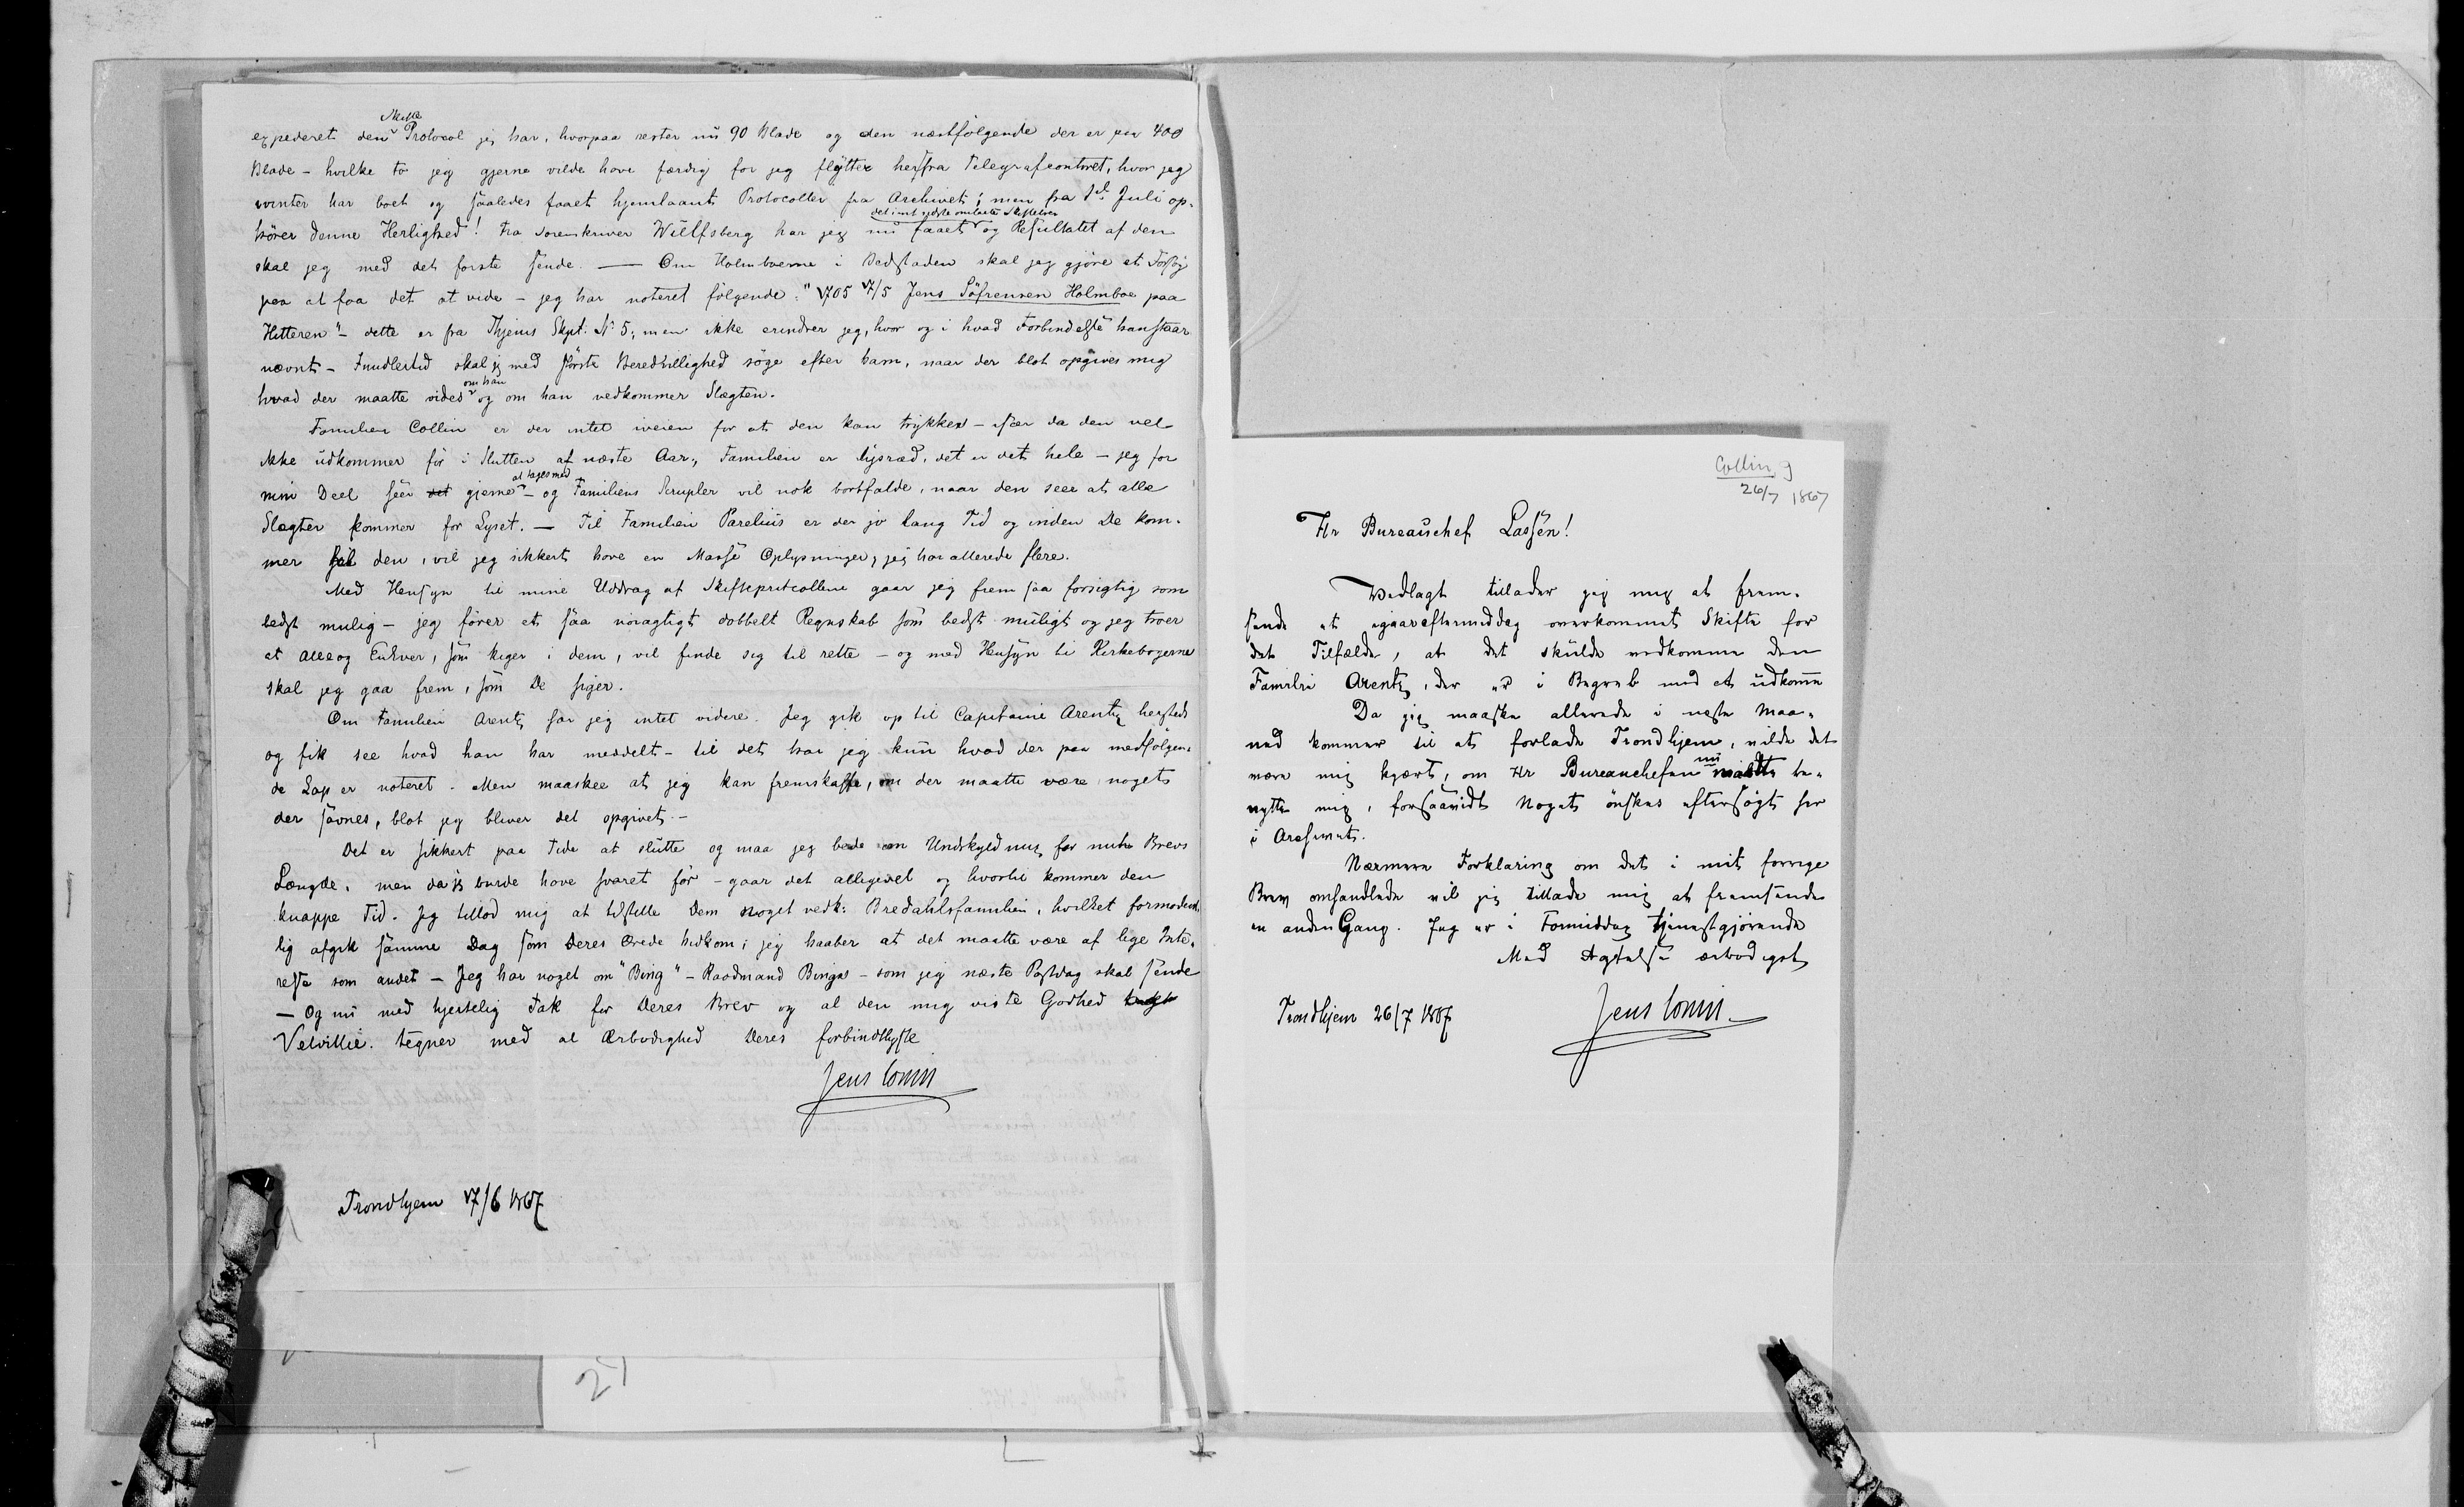 Skifte
expederet den Protocol jeg har, hvorpaa rester nu 90 Blade og den næstfølgende der er paa 400
Blade - hvilke to jeg gjerne vilde have færdig før jeg flytter herfra Telegrafcontoret, hvor jeg
ivinter har boet og saaledes faaet hjemlaant Protocoller fra Archivet; men fra 1ste Juli op-
hører denne Herlighed! Fra Sorenskriver Wülfsberg har jeg nu faaet og Resultatet af den
skal jeg med det første sende. — Om Holmboerne i Vedstaden skal jeg gjøre et Forsøg
paa at faa det at vide - jeg har noteret følgende: "1705 17/5 Jens Söfrensen Holmboe paa
Hitteren" - dette er fra Thjems Skpt. No 5; men ikke erindrer jeg, hvor og i hvad Forbindelse han staar
nævnt - Imidlertid skal jeg med største Beredvillighed søge efter ham, naar der blot opgives mig
om han
hvad der maatte vides og om han vedkommer Slægten.
Familien Collin er der intet iveien for at den kan trykkes - især da den vel
ikke udkommer før i Slutten af næste Aar; Familien er lysræd, det er det hele - jeg for
at tages med
min Deel seer det gjerne - og Familiens Scrupler vil nok bortfalde, naar den seer at alle
Slægter kommer for Lyset. — Til Familien Parelius er der jo lang Tid og inden De kom-
mer til den, vil jeg sikkert have en Masse Oplysninger, jeg har allerede flere.
Med Hensyn til mine Uddrag af Skifteprotcollene gaar jeg frem saa forsigtig som
bedst mulig - jeg fører et saa nøiagtigt dobbelt Regnskab som bedst muligt og jeg troer
at Alle og Enhver, som kiger i dem, vil finde sig til rette - og med Hensyn til Kirkebøgerne
skal jeg gaa frem, som De siger.
Om Familien Arentz har jeg intet videre. Jeg gik op til Capitaine Arentz hersteds
og fik see hvad han har meddelt - til det har jeg kun hvad der paa medfølgen-
de Lap er noteret. Men maaskee at jeg kan fremskaffe, om der maatte være noget
der savnes, blot jeg bliver det opgivet. -
Det er sikkert paa Tide at slutte og maa jeg bede om Undskyldning for mit Brevs
Længde, men da jeg burde have svaret før - gaar det alligevel og hvortil kommer den
knappe Tid. Jeg tillod mig at tilstille Dem noget vedk: Bredahlsfamilien, hvilket formodent-
lig afgik samme Dag som Deres Ærede hidkom; jeg haaber at det maatte være af lige Inte-
resse som andet - Jeg har noget om "Bing" - Raadmand Bings - som jeg næste Postdag skal sende
- Og nu med hjertelig Tak for Deres Brev og al den mig viste Godhed
Velvillie. tegner med al Ærbødighed Deres forbindtligste
Jens Collin
Trondhjem 17/6 1867
27
Collin, J
26/7 1867
Hr Bureauchef Lassen!
Vedlagt tillader jeg mig at frem-
sende et igaareftermiddag overkommet Skifte for
det Tilfælde, at det skulde vedkomme den
Familie Arentz, der er i Begreb med at udkomme
Da jeg maaske allerede i neste Maa-
ned kommer til at forlade Trondhjem, vilde det
nu
være mig kjært, om Hr Bureauchefen maatte be-
nytte mig, forsaavidt Noget ønskes eftersøgt her
i Archivet.
Nærmere Forklaring om det i mit forrige
Brev omhandlede vil jeg tillade mig at fremsende
en anden Gang. Jeg er i Formiddag tjenestgjørende
Med Agtelse ærbødigst
Trondhjem 26/7 1867
Jens Collin